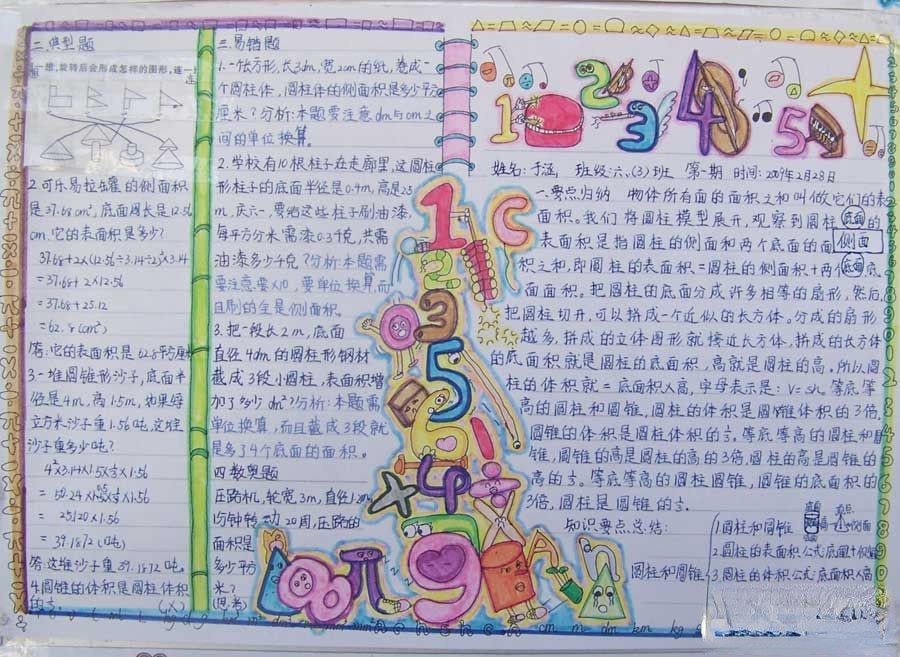 二、典型题
一想,旋转后会形成怎样的图形,连一
2.可乐易拉罐的侧面积
是37.68cm²,底面周长是12.56
cm.它的表面积是多少?
37.68+2×(12.56÷3.14÷2)²×3.14
=37.68+2×12.56
=37.68+25.12
=62.8(cm²)
答:它的表面积是62.8平方厘米
3.一堆圆锥形沙子,底面半
径是4m,高1.5m,如果每
立方米沙子重1.56吨,这堆
沙子重多少吨?
4²×3.14×1.5×⅓×1.56
=50.24×1.5×⅓×1.56
=25.120×1.56
=39.1872(吨)
答:这堆沙子重39.1872吨。
4.圆锥的体积是圆柱体积
的⅓。(×)
三、易错题
1.一张方形,长3dm,宽2cm的纸,卷成一
个圆柱体,圆柱体的侧面积是多少平方
厘米?分析:本题要注意dm与cm之
间的单位换算。
2.学校有10根柱子在走廊里,这圆柱
形柱子的底面半径是0.4m,高是2.5
m,庆六一,要给这些柱子刷油漆,
每平方分米需漆0.3千克,共需
油漆多少千克?分析:本题需
要注意要×10,要单位换算,而
且刷的全是侧面积。
3.把一段长2m,底面
直径4dm的圆柱形钢材
截成3段小圆柱,表面积增
加了多少dm²?分析:本题需
单位换算,而且截成3段就
是多了4个底面的面积。
四、数奥题
压路机,轮宽3m,直径1.20m
1分钟转动20周,压路的
面积是
多少平方
米?
(思考)
1 2 3 4 5
姓名:于涵, 班级:六.(3)班 第一期 时间:2009年2月28日
一、要点归纳 物体所有面的面积之和叫做它们的表
面积。我们将圆柱模型展开,观察到圆柱底面的
表面积是指圆柱的侧面和两个底面的面 侧面
积之和,即圆柱的表面积=圆柱的侧面积+两个底 底面
面面积。把圆柱的底面分成许多相等的扇形,然后
把圆柱切开,可以拼成一个近似的长方体,分成的扇形
越多,拼成的立体图形就接近长方体,拼成的长方体
的底面积就是圆柱的底面积,高就是圆柱的高。所以圆
柱的体积就=底面积×高,字母表示是:V=sh。等底等
高的圆柱和圆锥,圆柱的体积是圆锥体积的3倍,
圆锥的体积是圆柱体积的⅓。等底等高的圆柱和圆
锥,圆锥的高是圆柱的高的3倍,圆柱的高是圆锥的
高的⅓。等底等高的圆柱圆锥,圆锥的底面积的
3倍,圆柱是圆锥的⅓.
知识要点总结:
圆柱和圆锥
1.圆柱和圆锥
2.圆柱的表面积公式:底面+侧面
3.圆柱的体积公式:底面积×高